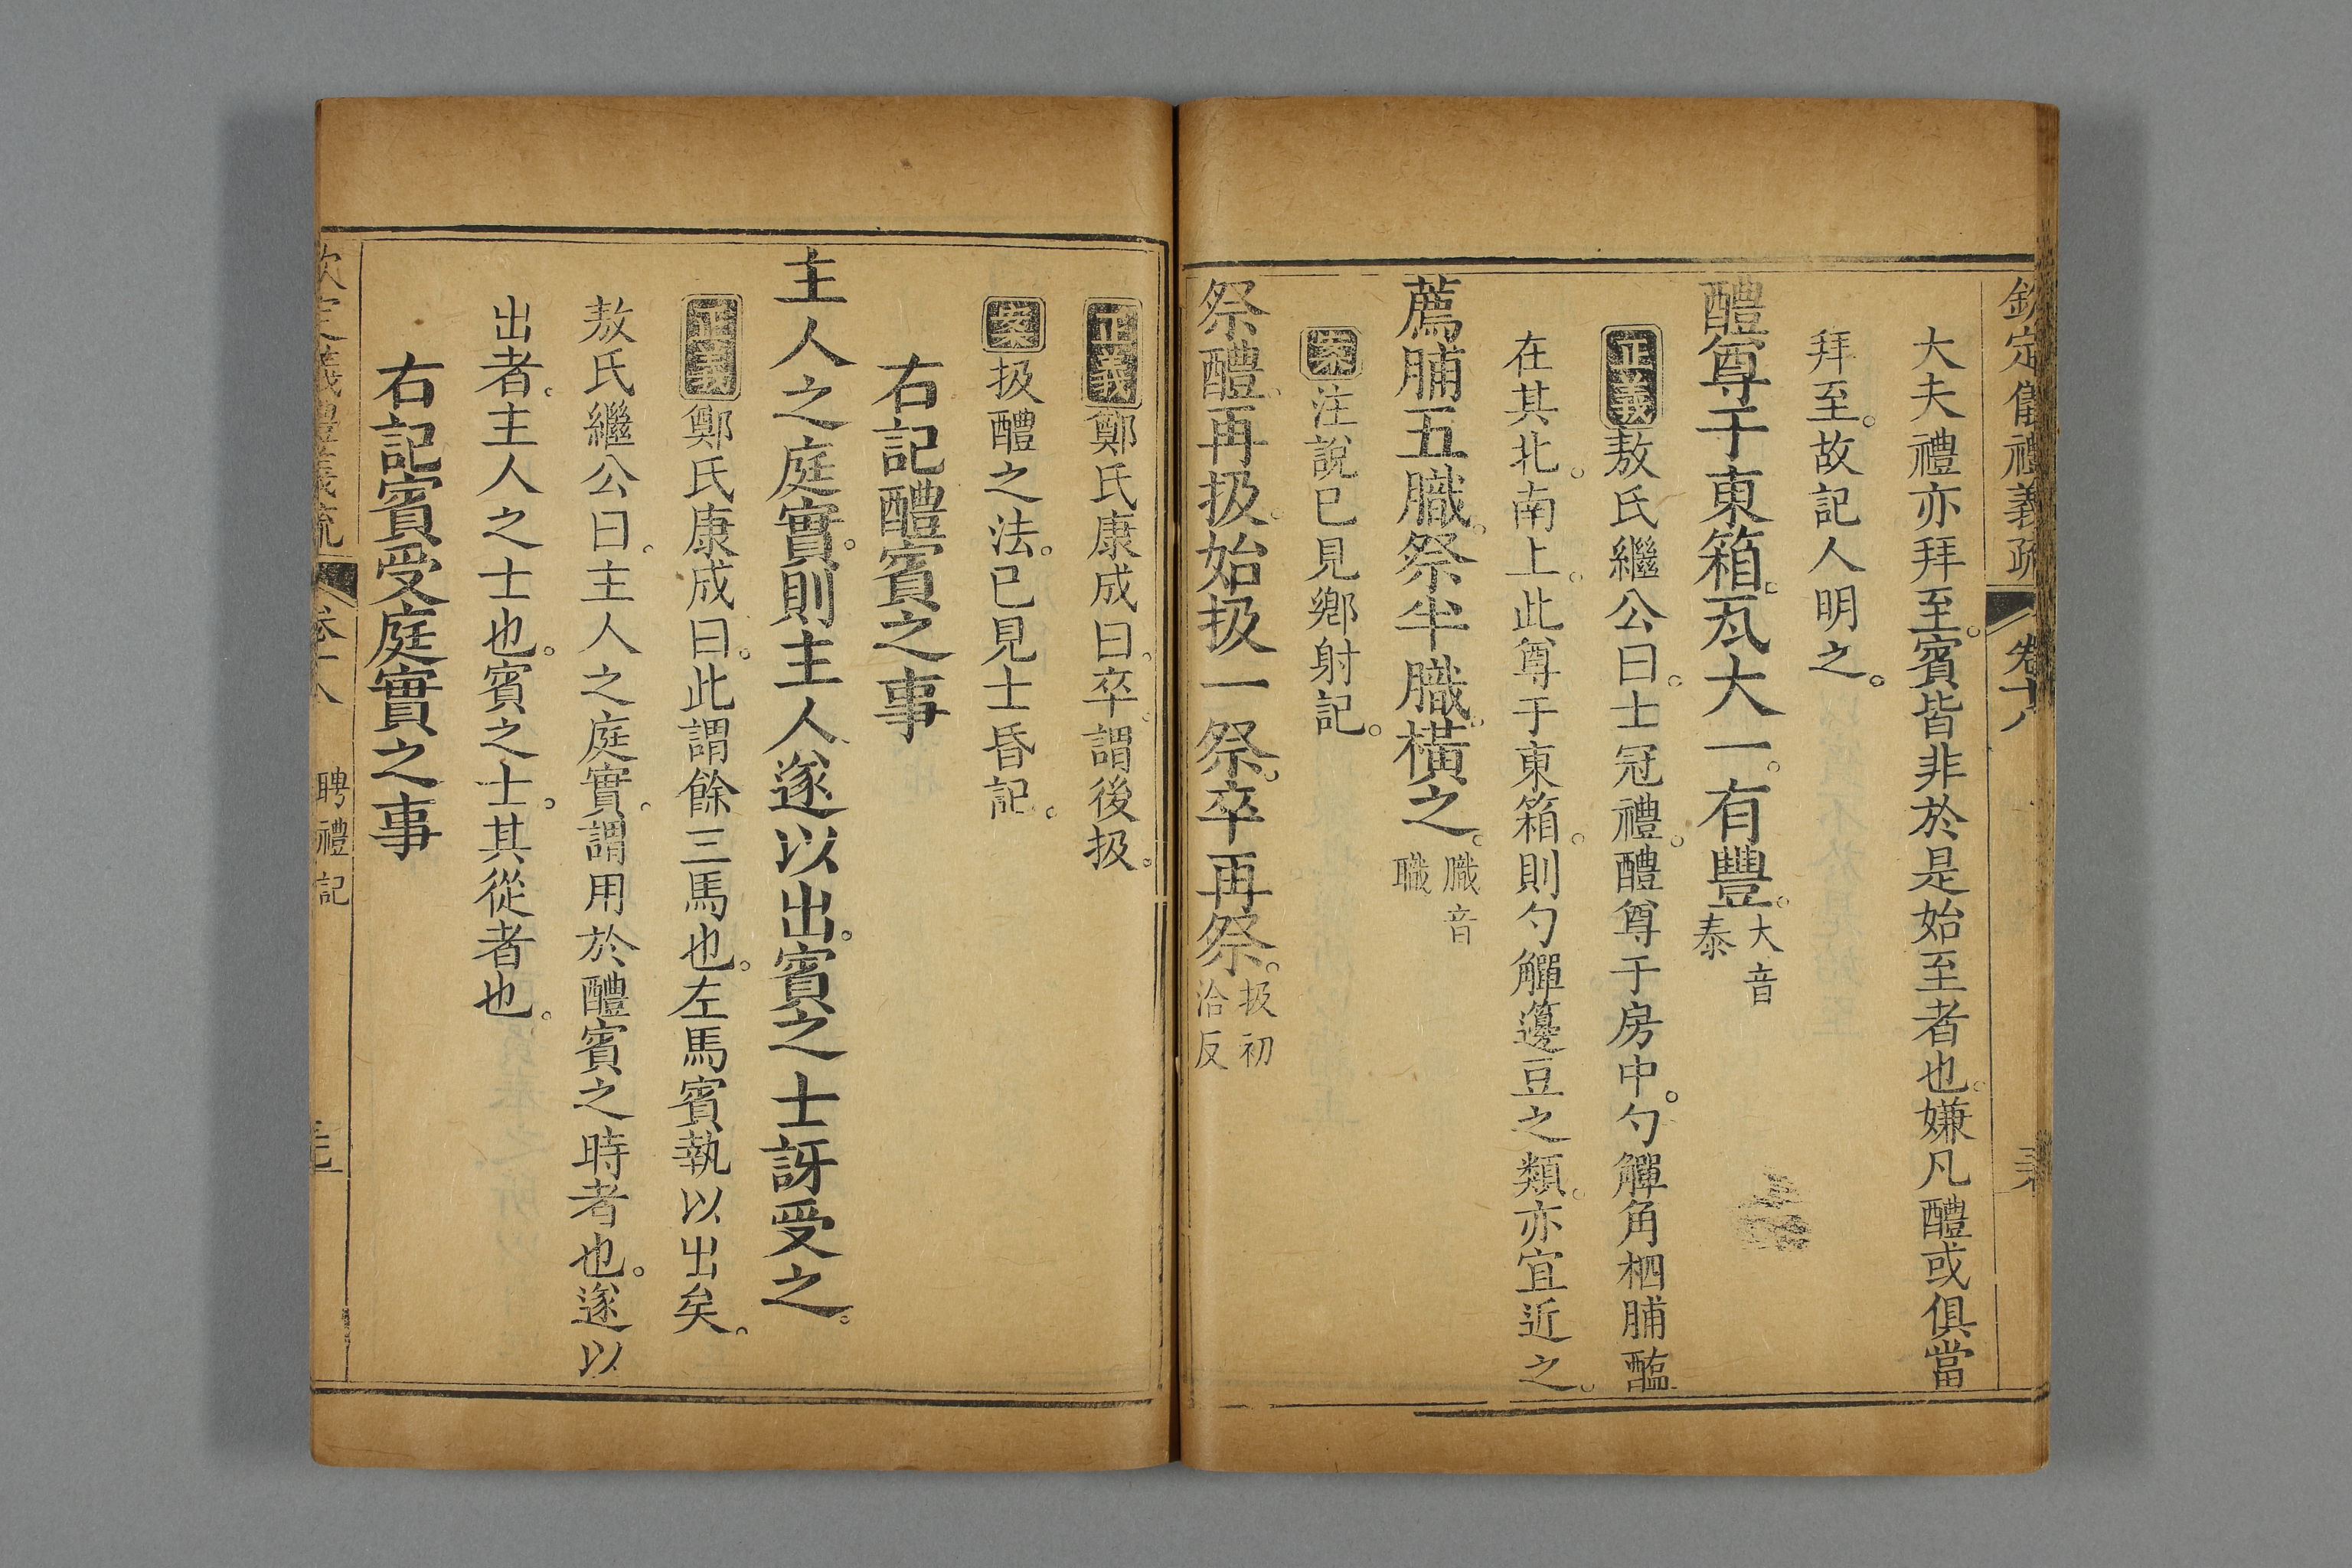 欽定儀禮義疏 卷十八
大夫禮亦拜至賓皆非於是始至者也嫌凡醴或俱當
拜至故記人明之
醴尊于東箱瓦大一有豐大音泰
正義敖氏繼公曰士冠禮醴尊于房中勺觶角柶脯醢
在其北南上此尊于東箱則勺觶籩豆之類亦宜近之
薦脯五膱祭半膱橫之膱音職
案注說已見鄉射記
祭醴再扱始扱一祭卒再祭扱初洽反
正義鄭氏康成曰卒謂後扱
案扱醴之法已見士昏記
右記醴賓之事
主人之庭實則主人遂以出賓之士訝受之
正義鄭氏康成曰此謂餘三馬也左馬賓執以出矣
敖氏繼公曰主人之庭實謂用於醴賓之時者也遂以
出者主人之士也賓之士其從者也
右記賓受庭實之事
欽定儀禮義疏 卷十八 聘禮記